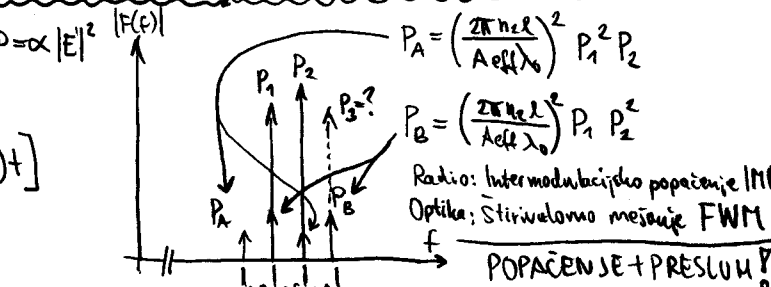 P=α|E|²
|F(f)|
P_A = (2π n₂ l / A_eff λ₀)² P₁² P₂
P₁ P₂
P₃=?
P_B = (2π n₂ l / A_eff λ₀)² P₁ P₂²
)t]
Radio: Intermodulacijsko popačenje IM
P_A P_B
Optika: Štirivalovno mešanje FWM
f
POPAČENJE + PRESLUH!